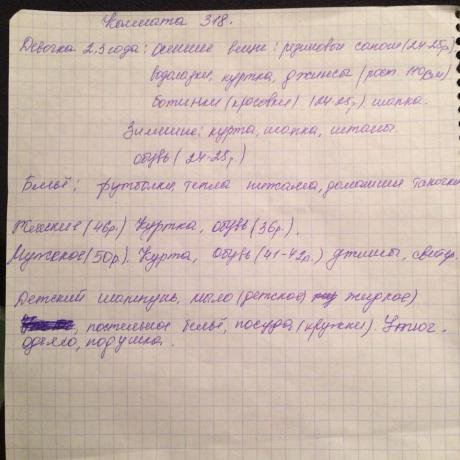 Комната 318.
Девочка 2,5 года: Осенние вещи: резиновые сапоги (24-25р)
водолазки, куртка, джинсы (рост 110см)
ботинки (кросовки) (24-25р), шапка.
Зимние: курта, шапка, штаны
обувь (24-25р.)
Бельё: футболки, тепла пижама, домашние тапочки
Женские (46р) Куртка, обувь (36р).
Мужское (50р). Курта, обувь (41-42р.) джинсы, свитер.
Детский шампунь, мыло (детское жидкое)
, постельное бельё, посуда (кружки). Утюг.
одеяло, подушка.